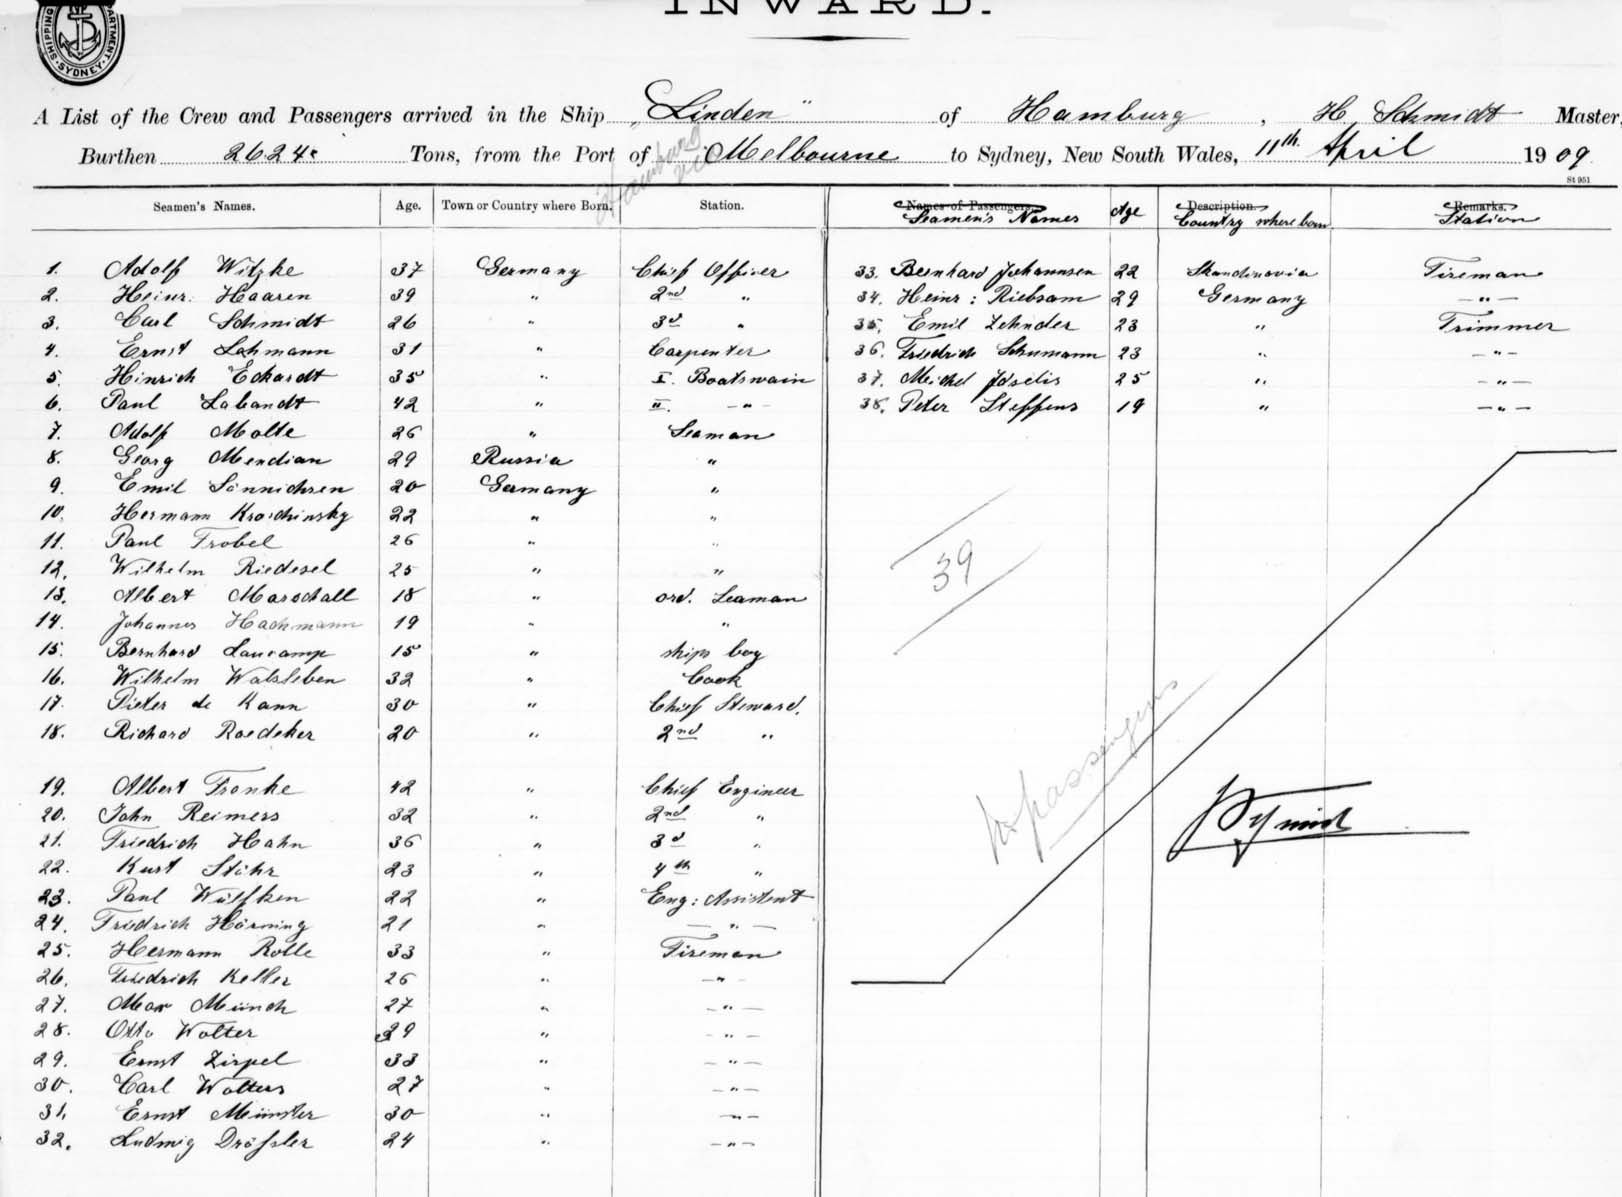 INWARD.
SHIPPING DEPARTMENT. SYDNEY.
A List of the Crew and Passengers arrived in the Ship „Linden" of Hamburg, H. Schmidt Master,
Burthen 2624. Tons, from the Port of Melbourne to Sydney, New South Wales, 11th April 1909
Hamburg
St 951
Seamen's Names. Age. Town or Country where Born. Station.
1. Adolf Witzke 37 Germany Chief Officer
2. Heinr. Haaren 39 " 2nd "
3. Carl Schmidt 26 " 3d "
4. Ernst Lahmann 31 " Carpenter
5. Hinrich Eckardt 35 " I. Boatswain
6. Paul Labandt 42 " II. -"-
7. Adolf Molle 26 " Seaman
8. Georg Mendian 29 Russia "
9. Emil Sönnichsen 20 Germany "
10. Hermann Kroschinsky 22 " "
11. Paul Trobel 26 " "
12. Wilhelm Riedesel 25 " "
13. Albert Marschall 18 " ord. Seaman
14. Johannes Hachmann 19 " "
15. Bernhard Laucamp 15 " ships boy
16. Wilhelm Walsleben 32 " Cook
17. Pieter de Kann 30 " Chief Steward.
18. Richard Roedeker 20 " 2nd "
19. Albert Franke 42 " Chief Engineer
20. John Reimers 32 " 2nd "
21. Friedrich Hahn 36 " 3d "
22. Kurt Stöhr 23 " 4th "
23. Paul Wülfken 22 " Eng: Assistent
24. Friedrich Hörning 21 " -"-
25. Hermann Rolle 33 " Fireman
26. Friedrich Keller 26 " -"-
27. Max Münch 27 " -"-
28. Otto Wolter 29 " -"-
29. Ernst Zirpel 33 " -"-
30. Carl Wolters 27 " -"-
31. Ernst Münster 30 " -"-
32. Ludwig Dräfsler 24 " -"-
Names of Passengers. Description. Remarks.
Seamen's Names Age Country where born Station
33. Bernhard Johannsen 22 Skandinavia Fireman
34. Heinr: Riebsam 29 Germany -"-
35. Emil Zehnder 23 " Trimmer
36. Friedrich Schumann 23 " -"-
37. Michel Joselis 25 " -"-
38. Peter Steffens 19 " -"-
39
No passengers